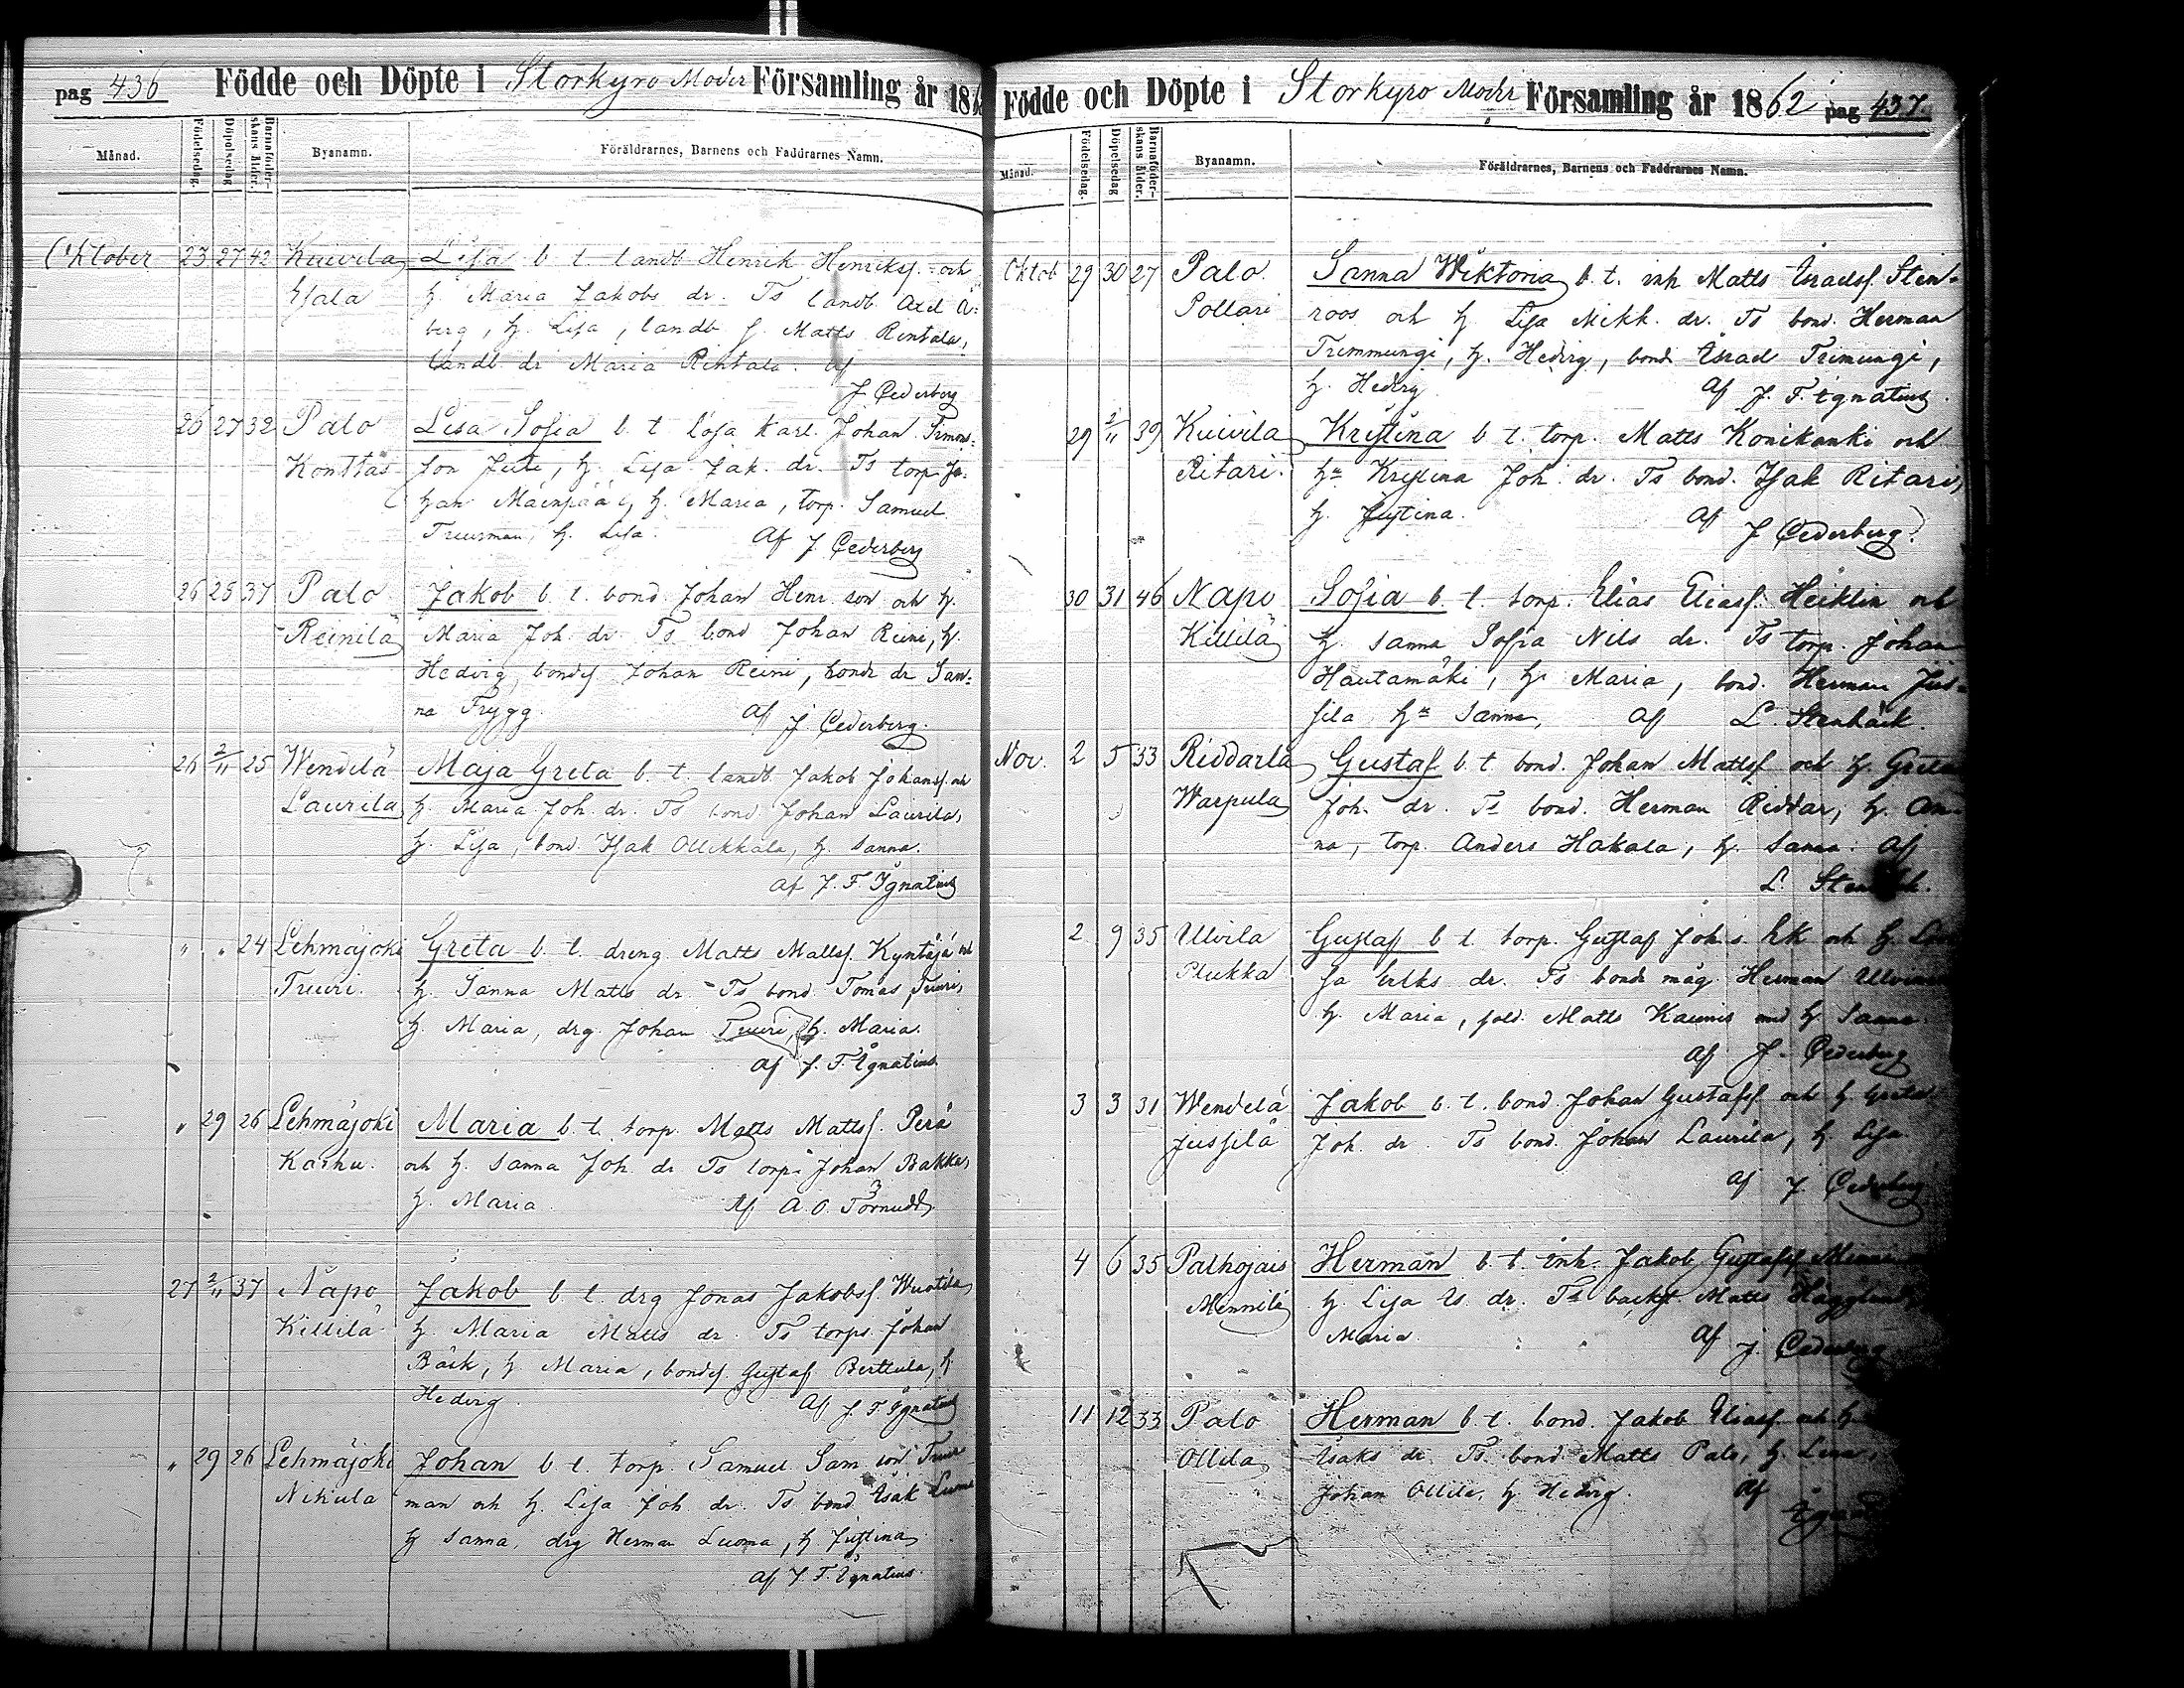 pag 436 Födde och Döpte i Storkyro Moder Församling år 186
Månad. Födelsedag. Döpelsedag Barnaföderskans ålder. Byanamn. Föräldrarnes, Barnens och Faddrarnes Namn.
Oktober 23 27 42 Kuivila Lisa b. t. landb. Henrik Henriks. och
Yjala h. Maria Jakobs dr. Ts landb. Axel Å=
berg, h. Lisa, landb. s. Matts Rintala,
landb. dr Maria Rintala. af
J Cederberg
26 27 32 Palo Lisa Sofia b. t lösa karl. Johan Simons=
Konttas son h. Lisa Jak. dr. Ts torp. Jo=
han Mäenpää, h. Maria, torp. Samuel
Truusman, h. Lisa. Af J Cederberg
26 25 37 Palo Jakob b. t. bond. Johan Henr. son och h.
Reinilä Maria Joh. dr. Ts bond Johan Reini, h.
Hedvig, bondes. Johan Reini, bonde dr San=
na Frygg. af J. Cederberg.
26 2/11 25 Wendelä Maja Greta b. t. landb. Jakob Johans. och
Laurila h. Maria Joh. dr. Ts bond. Johan Laurila,
h. Lisa, bond. Isak Ollikkala, h. Sanna.
af J. F. Ignatius
" " 24 Lehmäjoki Greta b. t. dreng Matts Matts. Kyntäjä och
Tuuri. h. Sanna Matts dr. Ts bond. Tomas Tuuri,
h. Maria, drg. Johan Tuuri, h. Maria.
af J. F. Ignatius.
" 29 26 Lehmäjoki Maria b. t. torp. Matts Matts. Perä
Karhu. och h. Sanna Joh. dr Ts torp. Johan Bakka,
h. Maria. Af A. O. Törnudd
27 2/11 37 Napo Jakob b. t. drg Jonas Jakobs. Wuotila
Killilä h. Maria Matts dr. Ts torp. Johan
Bäck, h. Maria, bondes. Gustaf Berttula, h.
Hedvig. Af J. F. Ignatius
" 29 26 Lehmäjoki Johan b. t. torp. Samuel Sam. son
Nikula man och h. Lisa Joh. dr. Ts bond Isak Luoma
h Sanna, drg Herman Luoma, h Justina
af J. F. Ignatius
Födde och Döpte i Storkyro Moder Församling år 1862 pag 437.
Månad. Födelsedag. Döpelsedag Barnaföderskans ålder. Byanamn. Föräldrarnes, Barnens och Faddrarnes Namn.
Oktob 29 30 27 Palo Sanna Wiktoria b. t. inh Matts Israels. Sten=
Pollari roos och h. Lisa Mikk. dr. Ts bond. Herman
Tremmungi, h. Hedvig, bond. Israel Trimungi,
h. Hedvig. Af J. F. Ignatius.
29 2/11 39 Kuivila Kristina b t. torp. Matts Konikanki och
Ritari. hu Kristina Joh. dr. Ts bond. Isak Ritari,
h. Justina. Af J Cederberg.
30 31 46 Napo Sofia b. t. torp. Elias Elias. Heiklin och
Killilä h. Sanna Sofia Nils dr. Ts torp. Johan
Hautamäki, h. Maria, bond. Herman Jus=
sila hu Sanna, Af L. Stenbäck.
Nov. 2 5 33 Riddarla Gustaf b t. bond. Johan Matts. och h. Greta
Warpula Joh. dr. Ts bond. Herman Riddar, h. An=
na, torp. Anders Hakala, h. Sanna. Af
L. Stenbäck.
2 9 35 Ulvila Gustaf b t. torp. Gustaf Joh. s. Ek och h. Lovi
Plukka sa Eriks dr. Ts bonde måg Herman
h. Maria, sold. Matts Kaunis med h. Sanna.
af J. Cederberg
3 3 31 Wendelä Jakob b. t. bond. Johan Gustafs. och h. Greta
Jussilä Joh. dr. Ts bond. Johan Laurila, h. Lisa
af J. Cederberg
4 6 35 Palhojais Herman b. t. inh. Jakob Gustafs.
Mennilä h. Lisa Is. dr. Ts backst. Matts Hägglund
Maria. Af J. Cederberg
11 12 33 Palo Herman b. t. bond. Jakob Elias. och h.
Ollila Isaks dr. Ts. bond Matts Palo, h. Lisa,
Johan Ollila, h. Hedvig. Af